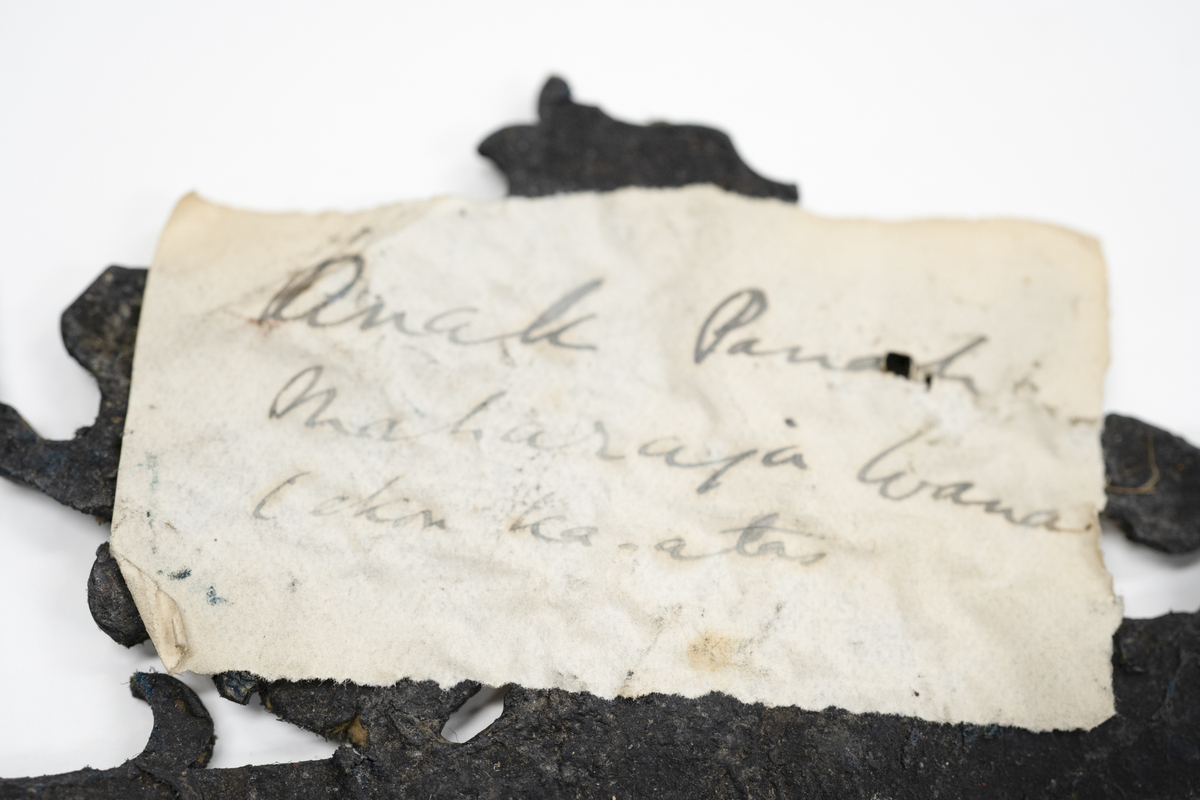 Anak Panah
Maharaja Wana
ka-atas